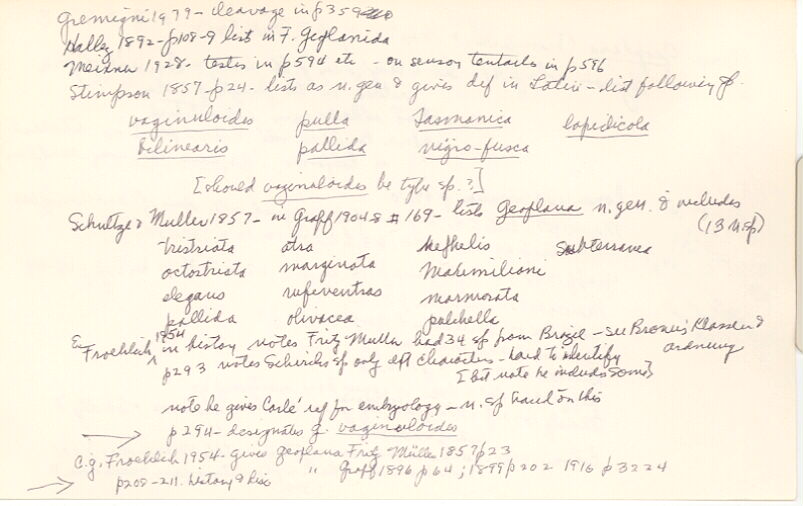 Gremigni 1979 - cleavage in p359
Hallez 1892 - p108-9 lists in F. Geoplanida
Meixner 1928 - testes in p594 etc - on sensory tentacles in p596
Stimpson 1857 - p24 - lists as n.gen & gives def in Latin - list following sp.
vaginuloides pulla Tasmanica lapidicola
bilinearis pallida nigro-fusca
[should vaginuloides be type sp.?]
Schultze & Muller 1857 - in Graff 1904-8 # 169 - lists Geoplana n.gen. & includes
(13 n.sp)
tristriata atra nephelis subterranea
octostriata marginata Maximiliani
elegans rufiventris marmorata
pallida olivacea pulchella
E Froehlich, 1954 in history notes Fritz Muller had 34 sp from Brazil - see Bronn's Klassen &
ordnung
p293 notes Schirch's sp only ext characters - hard to identify
[but note he includes some]
note he gives Carlé ref for embryology - n. sp based on this
p294 - designates g. vaginuloides
C.g. Froehlich 1954 - gives geoplana Fritz Müller 1857 p23
" Graff 1896 p64; 1899 p202 1916 p3224
p208-211. history & disc